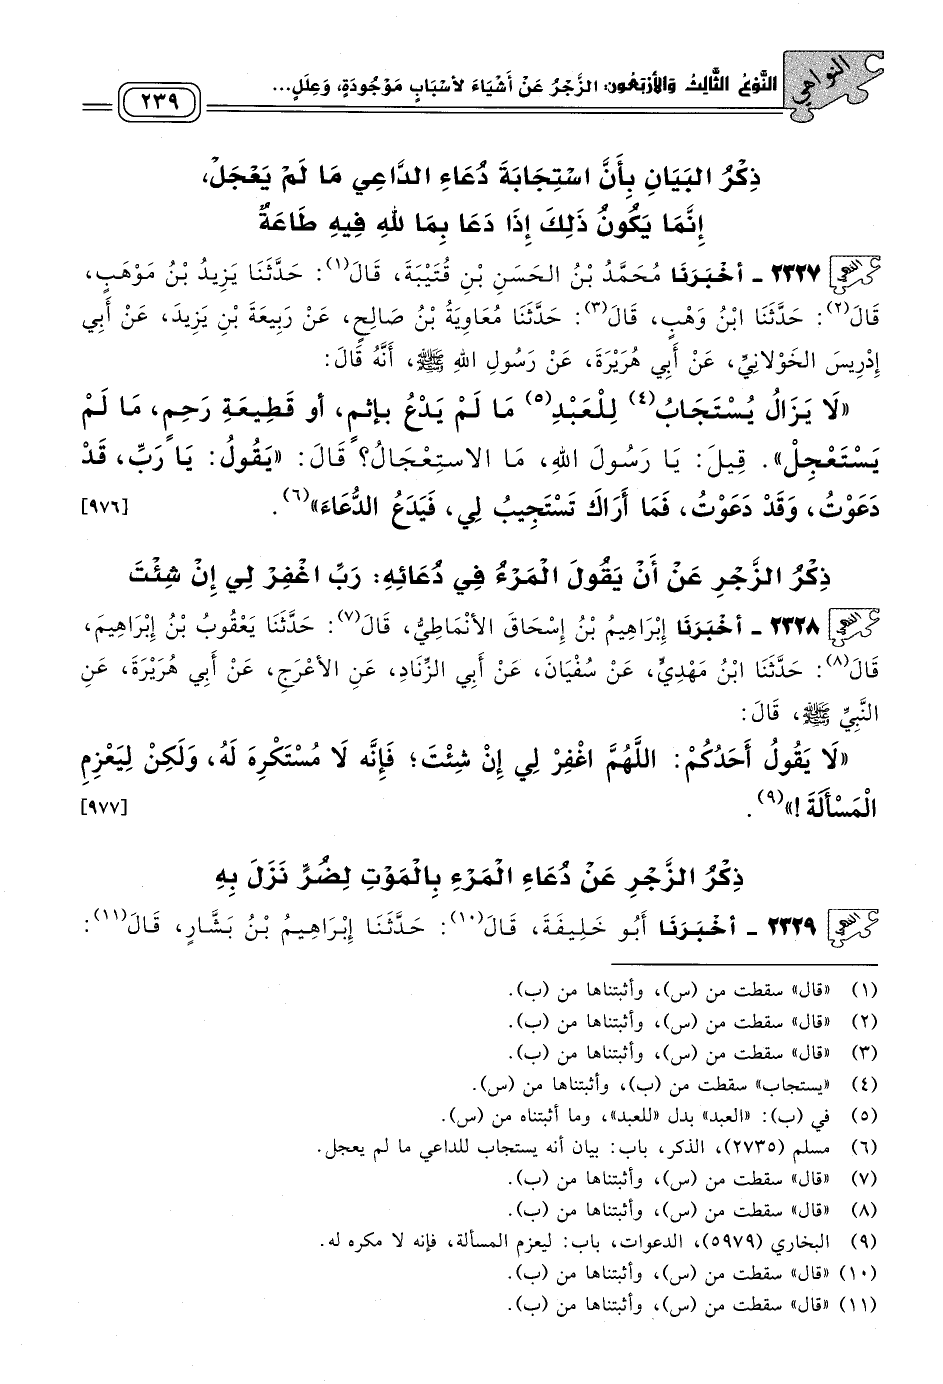 النواهي
النَّوْعُ الثَّالِثُ وَالأَرْبَعُون: الزَّجْرُ عَنْ أَشْيَاءَ لأَسْبَابٍ مَوْجُودَةٍ، وَعِلَلٍ...
٢٣٩
ذِكْرُ البَيَانِ بِأَنَّ اسْتِجَابَةَ دُعَاءِ الدَّاعِي مَا لَمْ يَعْجَلْ،
إِنَّمَا يَكُونُ ذَلِكَ إِذَا دَعَا بِمَا للهِ فِيهِ طَاعَةٌ
٢٣٢٧ - أَخْبَرَنَا مُحَمَّدُ بْنُ الحَسَنِ بْنِ قُتَيْبَةَ، قَالَ(١): حَدَّثَنَا يَزِيدُ بْنُ مَوْهَبٍ،
قَالَ(٢): حَدَّثَنَا ابْنُ وَهْبٍ، قَالَ(٣): حَدَّثَنَا مُعَاوِيَةُ بْنُ صَالِحٍ، عَنْ رَبِيعَةَ بْنِ يَزِيدَ، عَنْ أَبِي
إِدْرِيسَ الخَوْلانِيِّ، عَنْ أَبِي هُرَيْرَةَ، عَنْ رَسُولِ اللهِ ﷺ، أَنَّهُ قَالَ:
«لَا يَزَالُ يُسْتَجَابُ(٤) لِلْعَبْدِ(٥) مَا لَمْ يَدْعُ بِإثمٍ، أو قَطِيعَةِ رَحِمٍ، مَا لَمْ
يَسْتَعْجِلْ». قِيلَ: يَا رَسُولَ اللهِ، مَا الاستِعْجَالُ؟ قَالَ: «يَقُولُ: يَا رَبِّ، قَدْ
دَعَوْتُ، وَقَدْ دَعَوْتُ، فَمَا أَرَاكَ تَسْتَجِيبُ لِي، فَيَدَعُ الدُّعَاءَ»(٦). [٩٧٦]
ذِكْرُ الزَّجْرِ عَنْ أَنْ يَقُولَ المَرْءُ فِي دُعَائِهِ: رَبِّ اغْفِرْ لِي إِنْ شِئْتَ
٢٣٢٨ - أَخْبَرَنَا إِبْرَاهِيمُ بْنُ إِسْحَاقَ الأَنْمَاطِيُّ، قَالَ(٧): حَدَّثَنَا يَعْقُوبُ بْنُ إِبْرَاهِيمَ،
قَالَ(٨): حَدَّثَنَا ابْنُ مَهْدِيٍّ، عَنْ سُفْيَانَ، عَنْ أَبِي الزِّنَادِ، عَنِ الأَعْرَجِ، عَنْ أَبِي هُرَيْرَةَ، عَنِ
النَّبِيِّ ﷺ، قَالَ:
«لَا يَقُولُ أَحَدُكُمْ: اللَّهُمَّ اغْفِرْ لِي إِنْ شِئْتَ؛ فَإِنَّه لَا مُسْتَكْرِهَ لَهُ، وَلَكِنْ لِيَعْزِمِ
الْمَسْأَلَةَ!»(٩). [٩٧٧]
ذِكْرُ الزَّجْرِ عَنْ دُعَاءِ المَرْءِ بِالْمَوْتِ لِضُرٍّ نَزَلَ بِهِ
٢٣٢٩ - أَخْبَرَنَا أَبُو خَلِيفَةَ، قَالَ(١٠): حَدَّثَنَا إِبْرَاهِيمُ بْنُ بَشَّارٍ، قَالَ(١١):
(١) «قال» سقطت من (س)، وأثبتناها من (ب).
(٢) «قال» سقطت من (س)، وأثبتناها من (ب).
(٣) «قال» سقطت من (س)، وأثبتناها من (ب).
(٤) «يستجاب» سقطت من (ب)، وأثبتناها من (س).
(٥) في (ب): «العبد» بدل «للعبد»، وما أثبتناه من (س).
(٦) مسلم (٢٧٣٥)، الذكر، باب: بيان أنه يستجاب للداعي ما لم يعجل.
(٧) «قال» سقطت من (س)، وأثبتناها من (ب).
(٨) «قال» سقطت من (س)، وأثبتناها من (ب).
(٩) البخاري (٥٩٧٩)، الدعوات، باب: ليعزم المسألة، فإنه لا مكره له.
(١٠) «قال» سقطت من (س)، وأثبتناها من (ب).
(١١) «قال» سقطت من (س)، وأثبتناها من (ب).